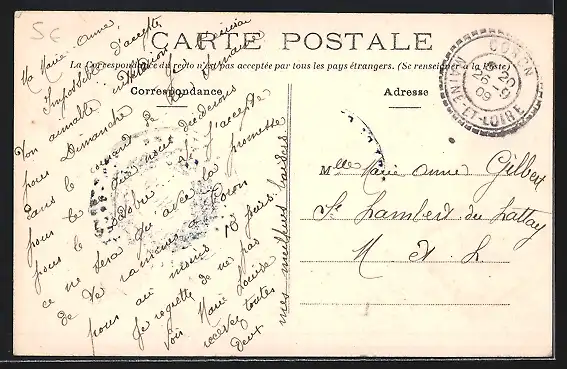 5c
CARTE POSTALE
La Correspondance du recto n'est pas acceptée par tous les pays étrangers. (Se renseigner à la Poste)
Correspondance
Adresse
CORON
20
26 - 9
09
MAINE-ET-LOIRE
Ma Marie-Anne
Impossible d'accepter
Ton aimable invitation
pour Dimanche
dans le courant de la semaine
pour le
que nous déciderons
pour le Octobre. Si j'accepte
ce ne sera qu'avec la promesse
de te ramener à Coron
pour au moins 15 jours.
Je regrette de ne pas
voir Marie Louise
recevez toutes
deux
mes meilleurs baisers
Mlle Marie Anne Gilbert
St Lambert du Lattay
M. et L.